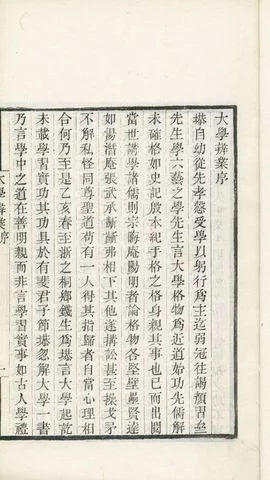 大學辨業序
塨自幼從先孝慤受學以躬行爲主迄弱冠往謁顏習齋
先生學六藝之學先生言大學格物爲近道始功先儒解
未確格如史記殷本紀手格之格身親其事也已而出閱
當世講學諸儒則宗晦庵陽明者論格物各堅壁壘賢達
如湯潛庵張武承齗齗弗相下其他逐搆訟甚至操戈矛
不解私怪同尊聖道苟有一人得其指歸者自當心理相
合何乃至是乙亥春至浙之桐鄉錢生爲塨言大學起訖
未載學習實功其功具於有斐君子節塨忽解大學一書
乃言學中之道在善明親而非言學習實事如古人學禮
大學辨業序
一